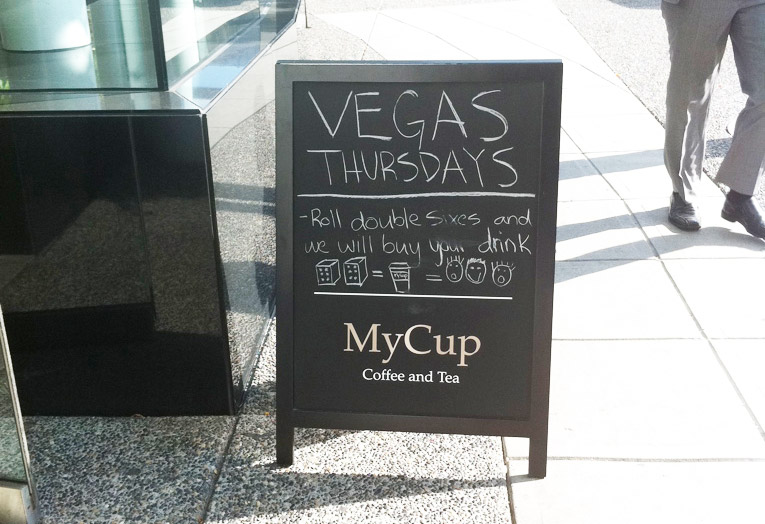 VEGAS
THURSDAYS
-Roll double sixes and
we will buy your drink
= =
MyCup
Coffee and Tea